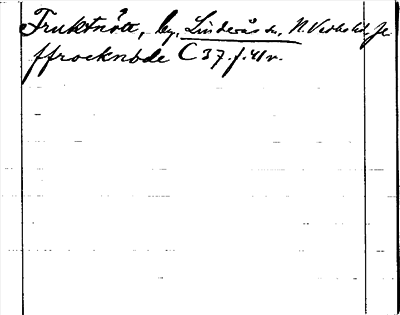 Fruktnöte, by, Linderås sn, N. Vedbo hd, Je.
ffrocknöde C 37. f. 41 v.